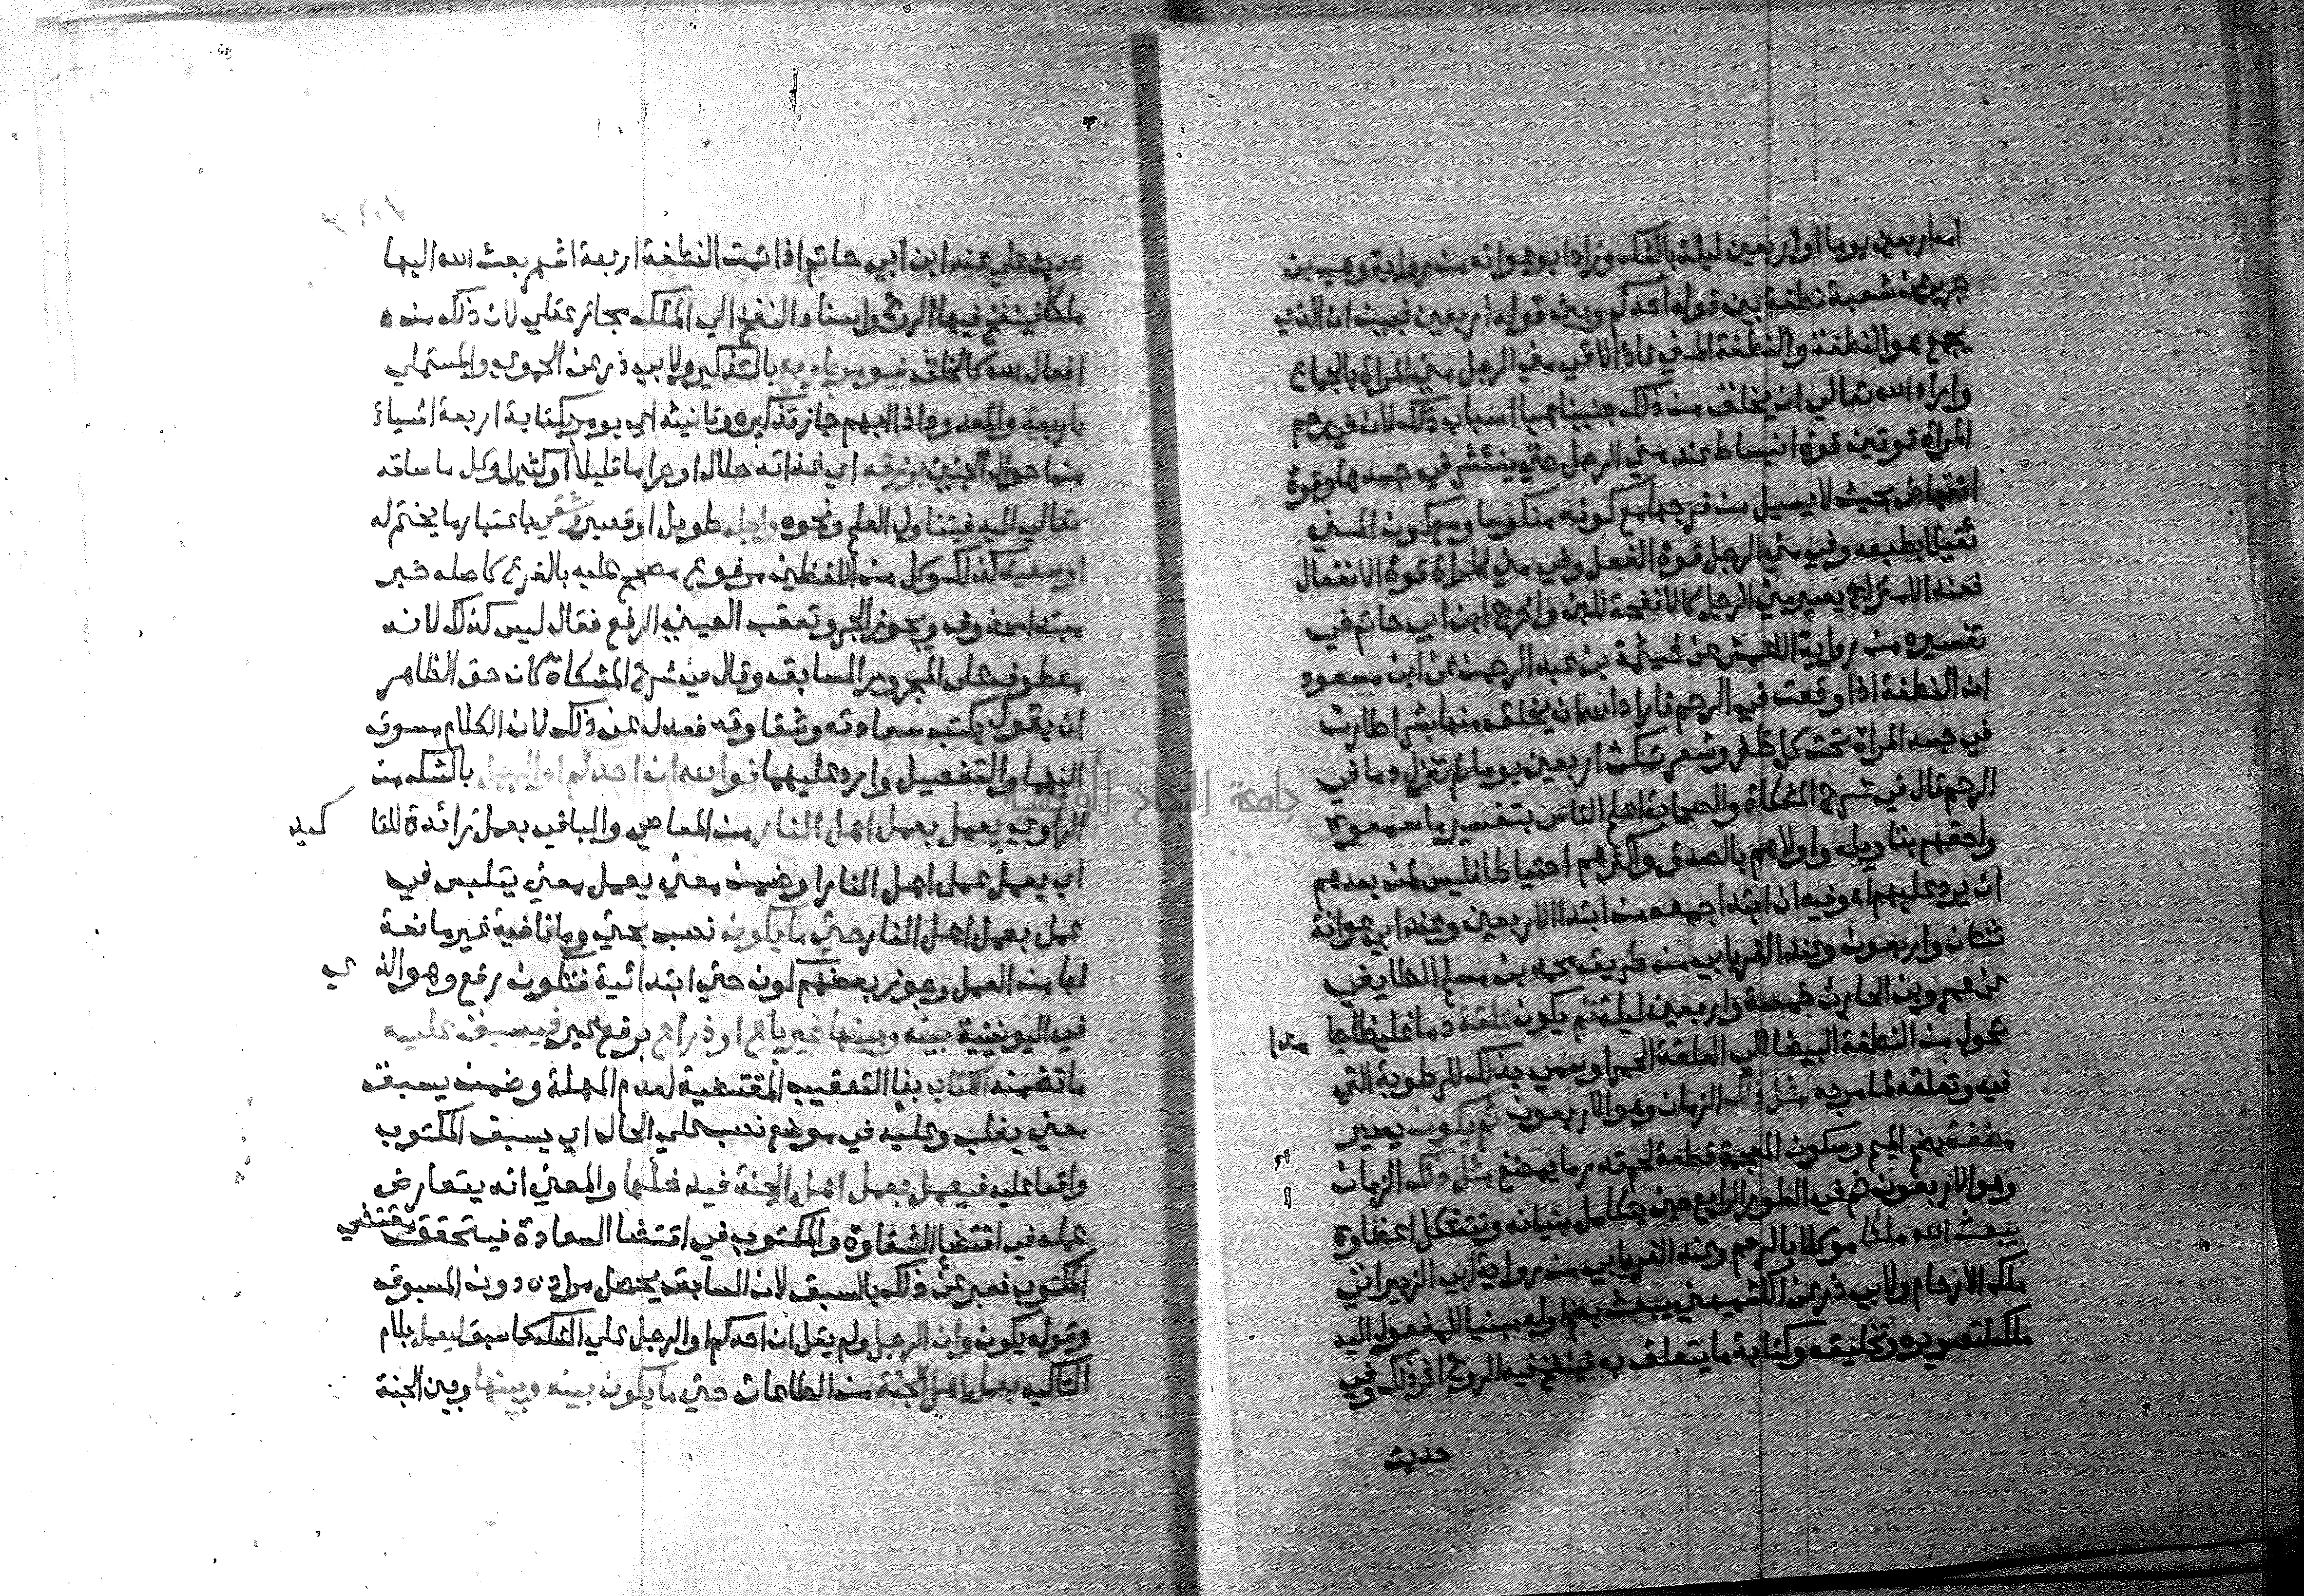 امه اربعين يوما او اربعين ليلة بالشك وزاد ابو عوانه من رواية وهب بن
جرير عن شعبة نطفة بين قوله احدكم وبين قوله اربعين فبين ان الذي
يجمع هو النطفة والنطفة المني فاذا لاقي مني الرجل مني المراة بالجماع
واراد الله تعالي ان يخلق من ذلك جنينا هيا اسباب ذلك لان في رحم
المراة قوتين قوة انبساط عند مني الرجل حتي ينتشر في جسدها وقوة
انقباض بحيث لا يسيل من فرجها مع كونه منكوسا ومع كون المني
ثقيلا بطبعه وفي مني الرجل قوة الفعل وفي مني المراة قوة الانفعال
فعند الامتزاج يصير مني الرجل كالانفحة للبن واخرج ابن ابي حاتم في
تفسيره من رواية الاعمش عن خيثمة بن عبد الرحمن عن ابن مسعود
ان النطفة اذا وقعت في الرحم فاراد الله ان يخلق منها بشرا طارت
في جسد المراة تحت كل ظفر وشعر ثم تمكث اربعين يوما ثم تنزل دما في
الرحم قال في شرح المشكاة والصحابة اعلم الناس بتفسير ما سمعوه
واحقهم بتاويله واولاهم بالصدق واكثرهم احتياطا فليس لمن بعدهم
ان يرد عليهم اه وفيه ان ابتدا جمعه من ابتدا الاربعين وعند ابي عوانة
ثنتان واربعون وعند الفريابي من طريق محمد بن مسلم الطايفي
عن عمرو بن الحارث خمسة واربعين ليلة ثم يكون علقة دما غليظا جا مدا
تحول من النطفة البيضا الي العلقة الحمرا وسمي بذلك للرطوبة التي
فيه وتعلقه بما مر به مثل ذلك الزمان وهو الاربعون ثم يكون يصير
مضغة بضم الميم وسكون المعجمة قطعة لحم قدر ما يمضغ مثل ذلك الزمان
وهو الاربعون ثم في الطور الرابع حين يتكامل بنيانه وتتشكل اعضاوه
يبعث الله ملكا موكلا بالرحم وعند الفريابي من رواية ابي الزبير اتي
ملك الارحام ولابي ذر عن الكشميهني يبعث بضم اوله مبنيا للمفعول اليه
ملك لتصويره وتخليقه وكتابة ما يتعلق به فينفخ فيه الروح اثر ذلك وفي
حديث
حديث علي عند ابن ابي حاتم اذا تمت النطفة اربعة اشهر بعث الله اليها
ملكا فينفخ فيها الروح واسناد النفخ الي الملك مجاز عقلي لان ذلك من
افعال الله كالخلق فيومر بالتذكير ولابي ذر عن الحموي والمستملي
باربعة والمعدود اذا ابهم جاز تذكيره وتانيثه اي يومر بكتابة اربعة اشياء
من احوال الجنين برزقه اي غذائه حلال او حرام قليلا او كثيرا وكل ما ساقه
تعالي اليه فيتناول العلم ونحوه واجله طويل او قصير وشقي باعتبار ما يختم له
او سعيد كذلك وكل من اللفظين مرفوع مصحح عليه بالفرع كاصله خبر
مبتدا محذوف ويجوز الجر وتعقب العيني الرفع فقال ليس كذلك لانه
معطوف علي المجرور السابق وقال في شرح المشكاة كان حق الظاهر
ان يقول يكتب سعادته وشقاوته فعدل عن ذلك لان الكلام مسوق
اليهما والتفصيل وارد عليهما فوالله ان احدكم او الرجل بالشك من
الراوي يعمل بعمل اهل النار من المعاصي والبا في بعمل زائدة للتا كيد
اي يعمل عمل اهل النار او ضمن معني يعمل معني يتلبس في
عمل بعمل اهل النار حتي ما يكون نصب بحتي وما نافية غير مانعة
لها من العمل وجوز بعضهم كون حتي ابتدائية فتكون رفع وهو الذ ي
في اليونينية بينه وبينها غير باع او ذراع برفع غير فيسبق عليه
ما تضمنه الكتاب بفا التعقيب المقتضية لعدم المهلة وضمن يسبق
معني يغلب وعليه في موضع نصب علي الحال اي يسبق المكتوب
واقعا عليه فيعمل بعمل اهل الجنة فيدخلها والمعني انه يتعارض
عمله في اقتضا الشقاوة والمكتوب في اقتضا السعادة فيتحقق مقتضي
المكتوب فعبر عن ذلك بالسبق لان السابق يحصل مراده دون المسبوق
وقوله يكون وان الرجل ولم يقل ان احدكم او الرجل علي الشك كما سبق ليعمل بلام
التاكيد بعمل اهل الجنة من الطاعات حتي ما يكون بينه وبينها وبين الجنة
جامعة النجاح الوطنية